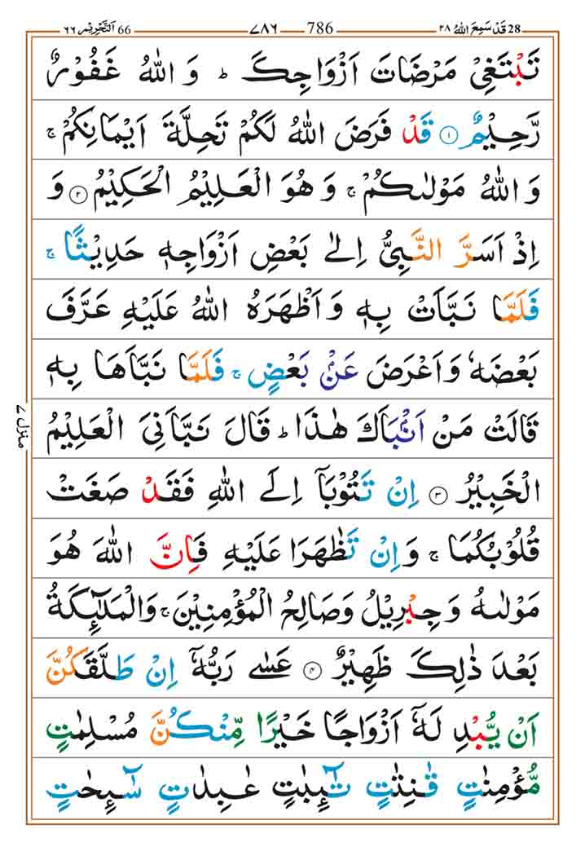 28 قَدْ سَمِعَ اللهُ ٢٨ 786 ٧٨٦ 66 اَلتَّحْرِيْم ٦٦
تَبْتَغِيْ مَرْضَاتَ اَزْوَاجِكَ ؕ وَ اللّٰهُ غَفُوْرٌ
رَّحِيْمٌ ۝١ قَدْ فَرَضَ اللّٰهُ لَكُمْ تَحِلَّةَ اَيْمَانِكُمْ ۚ
وَ اللّٰهُ مَوْلٰىكُمْ ۚ وَ هُوَ الْعَلِيْمُ الْحَكِيْمُ ۝٢ وَ
اِذْ اَسَرَّ النَّبِيُّ اِلٰى بَعْضِ اَزْوَاجِهٖ حَدِيْثًا ۚ
فَلَمَّا نَبَّاَتْ بِهٖ وَ اَظْهَرَهُ اللّٰهُ عَلَيْهِ عَرَّفَ
بَعْضَهٗ وَ اَعْرَضَ عَنْۢ بَعْضٍ ۚ فَلَمَّا نَبَّاَهَا بِهٖ
قَالَتْ مَنْ اَنْۢبَاَكَ هٰذَا ؕ قَالَ نَبَّاَنِيَ الْعَلِيْمُ
الْخَبِيْرُ ۝٣ اِنْ تَتُوْبَاۤ اِلَى اللّٰهِ فَقَدْ صَغَتْ
قُلُوْبُكُمَا ۚ وَ اِنْ تَظٰهَرَا عَلَيْهِ فَاِنَّ اللّٰهَ هُوَ
مَوْلٰىهُ وَ جِبْرِيْلُ وَ صَالِحُ الْمُؤْمِنِيْنَ ۚ وَ الْمَلٰٓئِكَةُ
بَعْدَ ذٰلِكَ ظَهِيْرٌ ۝٤ عَسٰى رَبُّهٗۤ اِنْ طَلَّقَكُنَّ
اَنْ يُّبْدِلَهٗۤ اَزْوَاجًا خَيْرًا مِّنْكُنَّ مُسْلِمٰتٍ
مُّؤْمِنٰتٍ قٰنِتٰتٍ تٰٓئِبٰتٍ عٰبِدٰتٍ سٰٓئِحٰتٍ
منزل ٧